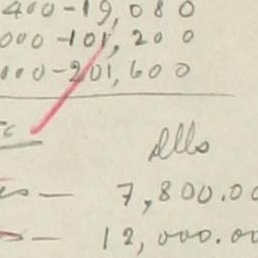 400-19,080
000-101,200
000-201,600
7,800.00
12,000.00